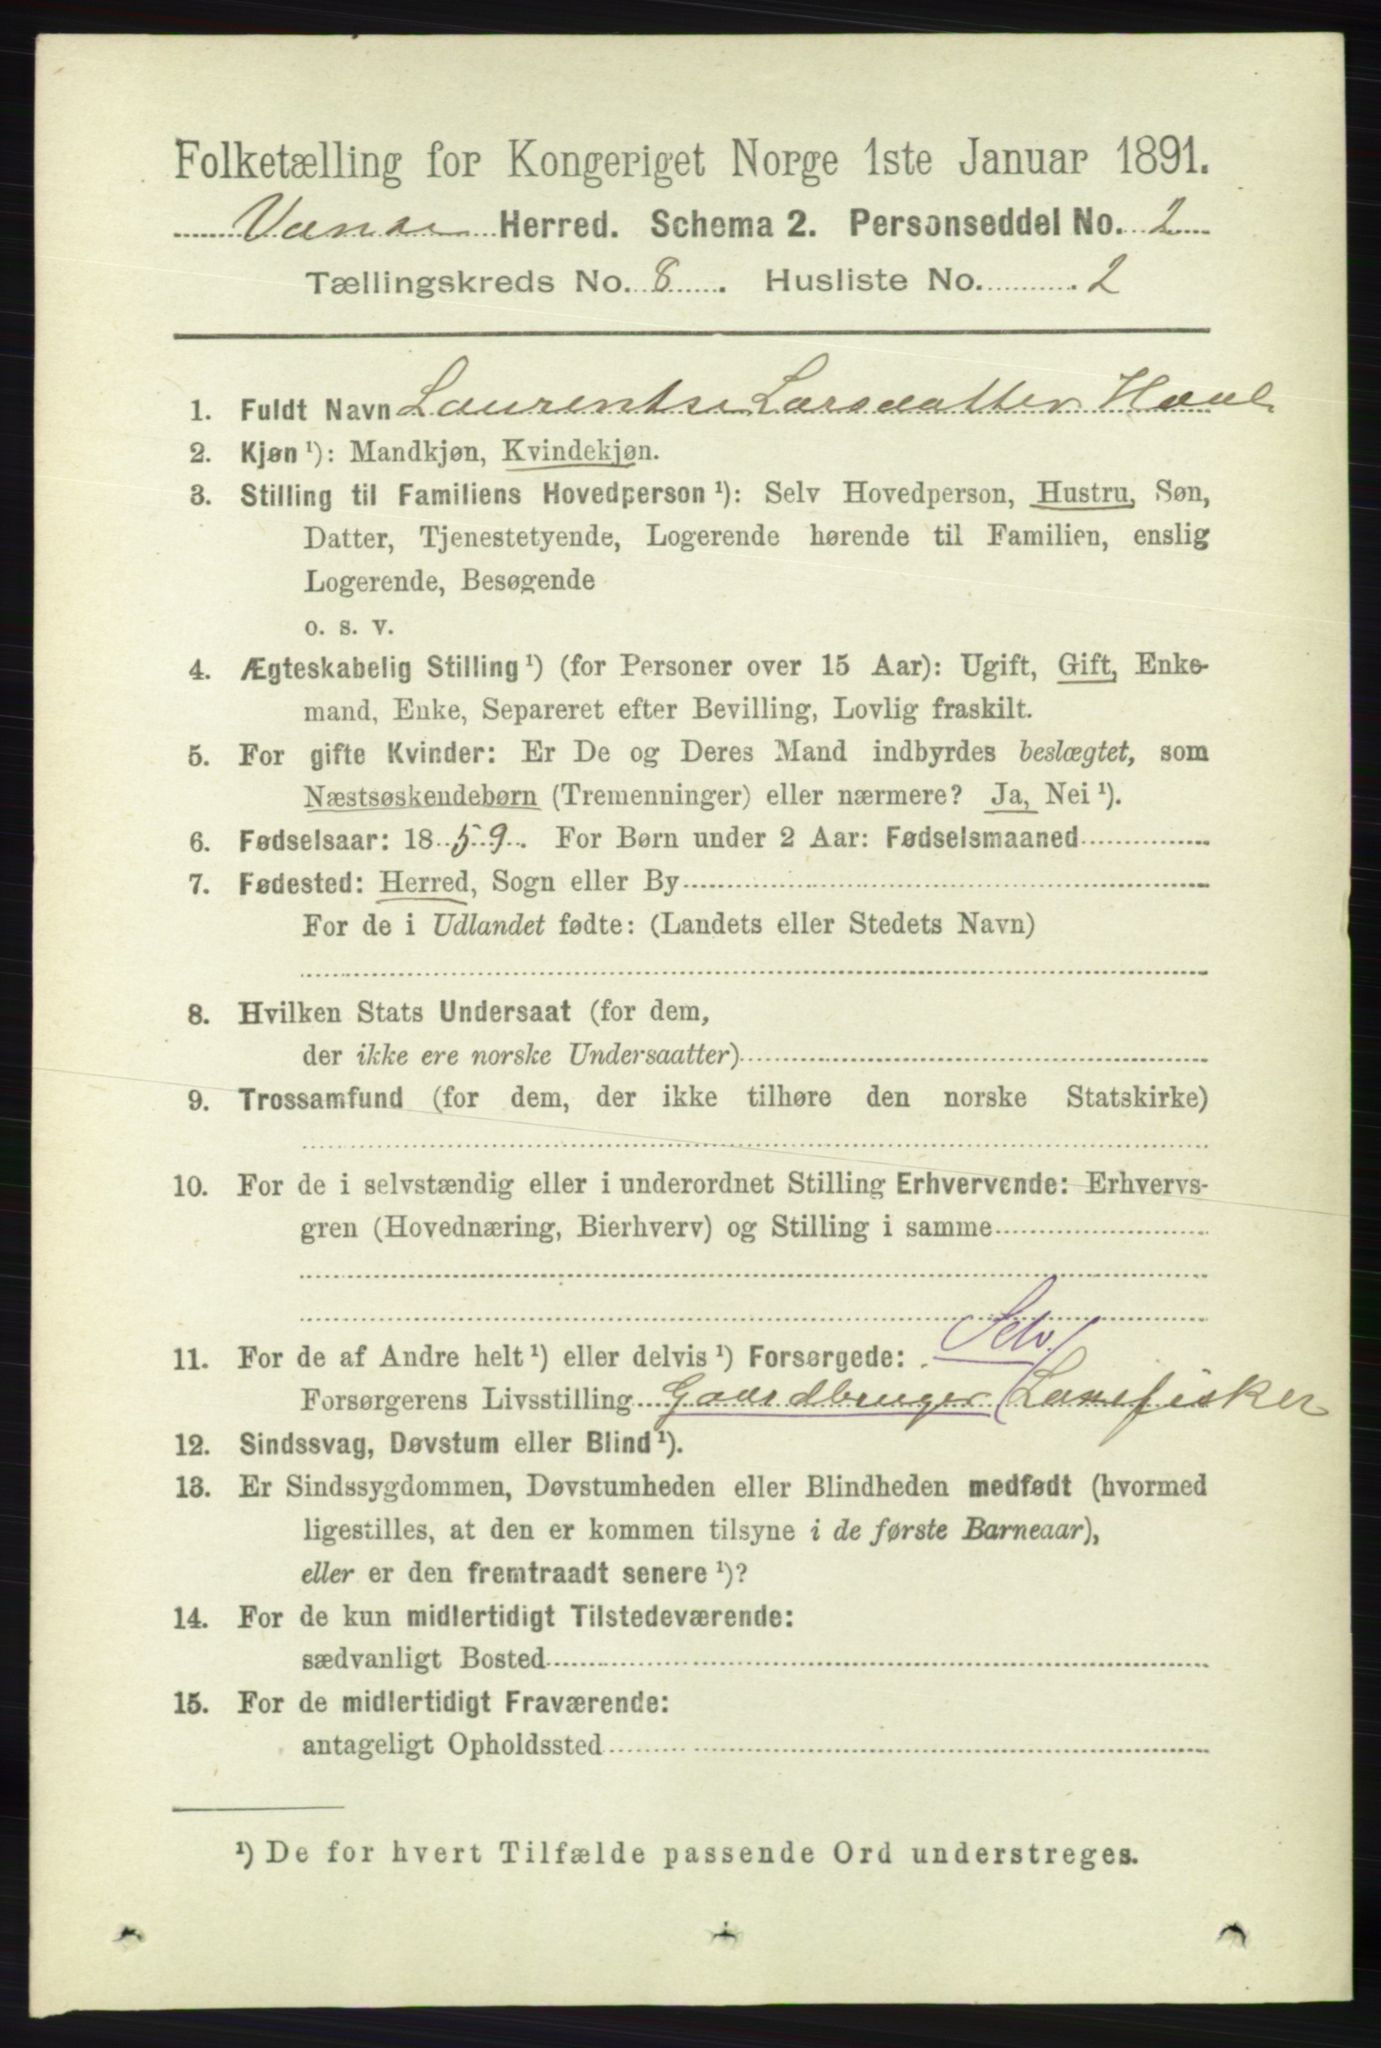 Folketælling for Kongeriget Norge 1ste Januar 1891.
Vanse Herred. Schema 2. Personseddel No. 2
Tællingskreds No. 8. Husliste No. 2
1. Fuldt Navn Laurentse Larsdatter
2. Kjøn ¹): Mandkjøn, Kvindekjøn.
3. Stilling til Familiens Hovedperson ¹): Selv Hovedperson, Hustru, Søn,
Datter, Tjenestetyende, Logerende hørende til Familien, enslig
Logerende, Besøgende
o. s. v.
4. Ægteskabelig Stilling ¹) (for Personer over 15 Aar): Ugift, Gift, Enke-
mand, Enke, Separeret efter Bevilling, Lovlig fraskilt.
5. For gifte Kvinder: Er De og Deres Mand indbyrdes beslægtet, som
Næstsøskendebørn (Tremenninger) eller nærmere? Ja, Nei ¹).
6. Fødselsaar: 1859. For Børn under 2 Aar: Fødselsmaaned
7. Fødested: Herred, Sogn eller By
For de i Udlandet fødte: (Landets eller Stedets Navn)
8. Hvilken Stats Undersaat (for dem,
der ikke ere norske Undersaatter)
9. Trossamfund (for dem, der ikke tilhøre den norske Statskirke)
10. For de i selvstændig eller i underordnet Stilling Erhvervende: Erhvervs-
gren (Hovednæring, Bierhverv) og Stilling i samme
11. For de af Andre helt ¹) eller delvis ¹) Forsørgede: Selv
Forsørgerens Livsstilling Gaardbruger
12. Sindssvag, Døvstum eller Blind ¹).
13. Er Sindssygdommen, Døvstumheden eller Blindheden medfødt (hvormed
ligestilles, at den er kommen tilsyne i de første Barneaar),
eller er den fremtraadt senere ¹)?
14. For de kun midlertidigt Tilstedeværende:
sædvanligt Bosted
15. For de midlertidigt Fraværende:
antageligt Opholdssted
¹) De for hvert Tilfælde passende Ord understreges.